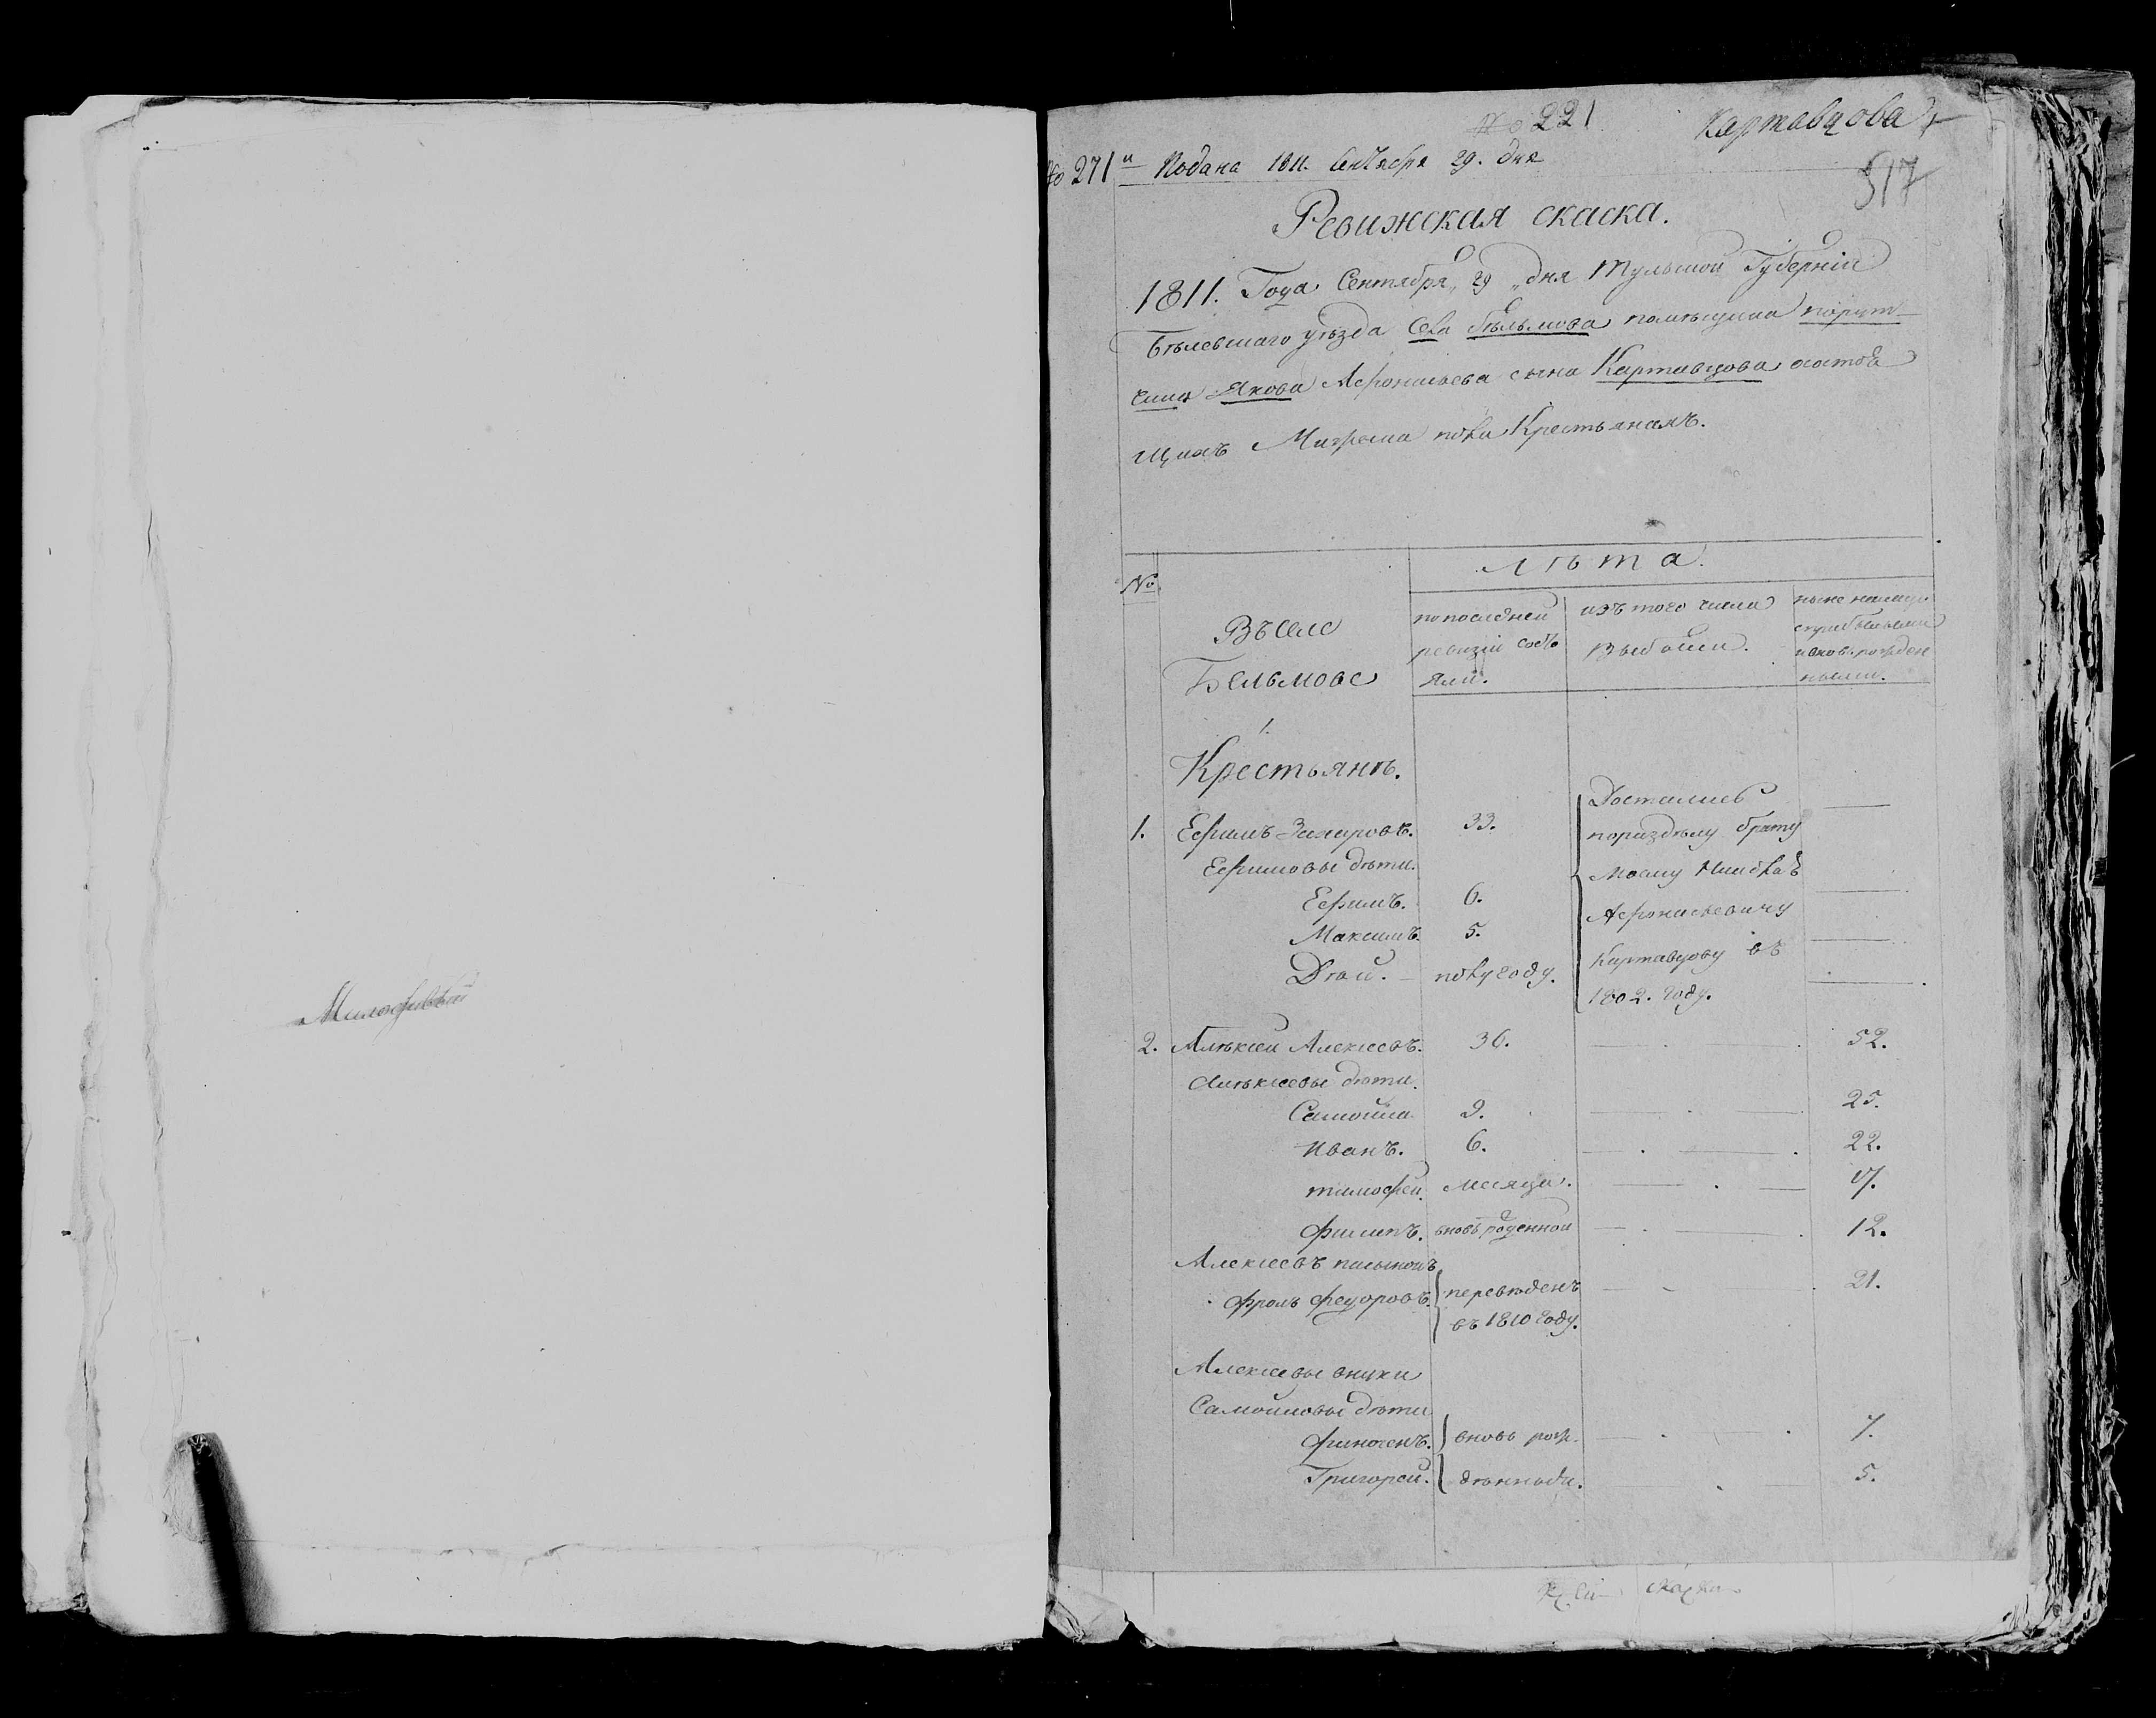 № 221
Картавцова
№ 271й Подана 1811. Сентября 29. дня
517
Ревижская скаска.
1811. Года Сентября „29„ дня Тульской Губерніи
Бѣлевскаго уѣзда Села Бельмова помѣщика порут-
чика Якова Афонасьева сына Картавцова состоя
щихъ Мужеска пола Крестьянахъ.
№
Въ селе
Бельмове
Лѣта.
по последней
ревизіи состо
яли.
изъ того числа
выбыли.
ныне налицо
с прибылыми
и вновь рожден
ными.
Крестьянъ.
1. Ефимъ Захаровъ. 33.
Достались
по разделу брату
Моему
Афонасьевичу
Картавцову въ
1802. году.
Ефимовы дѣти.
Ефимъ. 6.
Максимъ. 5.
полугоду.
2. Алѣксей Алексеевъ. 36. 52.
Алѣксеевы дѣти.
Самойла 9. 25.
Иванъ. 6. 22.
тимофей. месяца. 17.
Филипъ. вновь роденной 12.
Алексеевъ пасынокъ
Фролъ Федоровъ. переведенъ 21.
въ 1810 году.
Алексеевы внуки
Самойловы дѣти
Финогенъ. вновь рож- 7.
Григорей. 5.